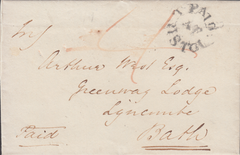 PAID
AT
BRISTOL
Arthur West Esq.
Greenway Lodge
Lyncombe
Bath
Paid